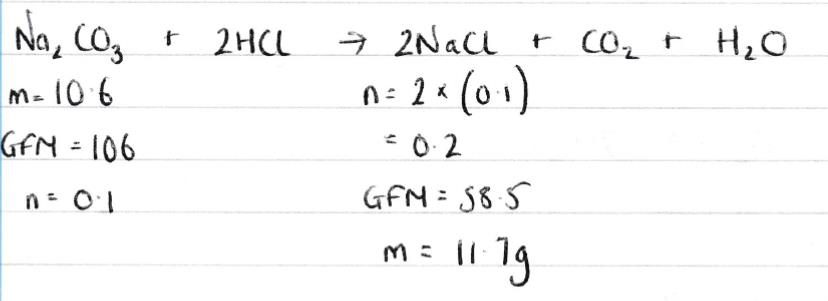 Na₂CO₃ + 2HCl → 2NaCl + CO₂ + H₂O
m = 10.6 n = 2 × (0.1)
GFM = 106 = 0.2
n = 0.1 GFM = 58.5
m = 11.7g